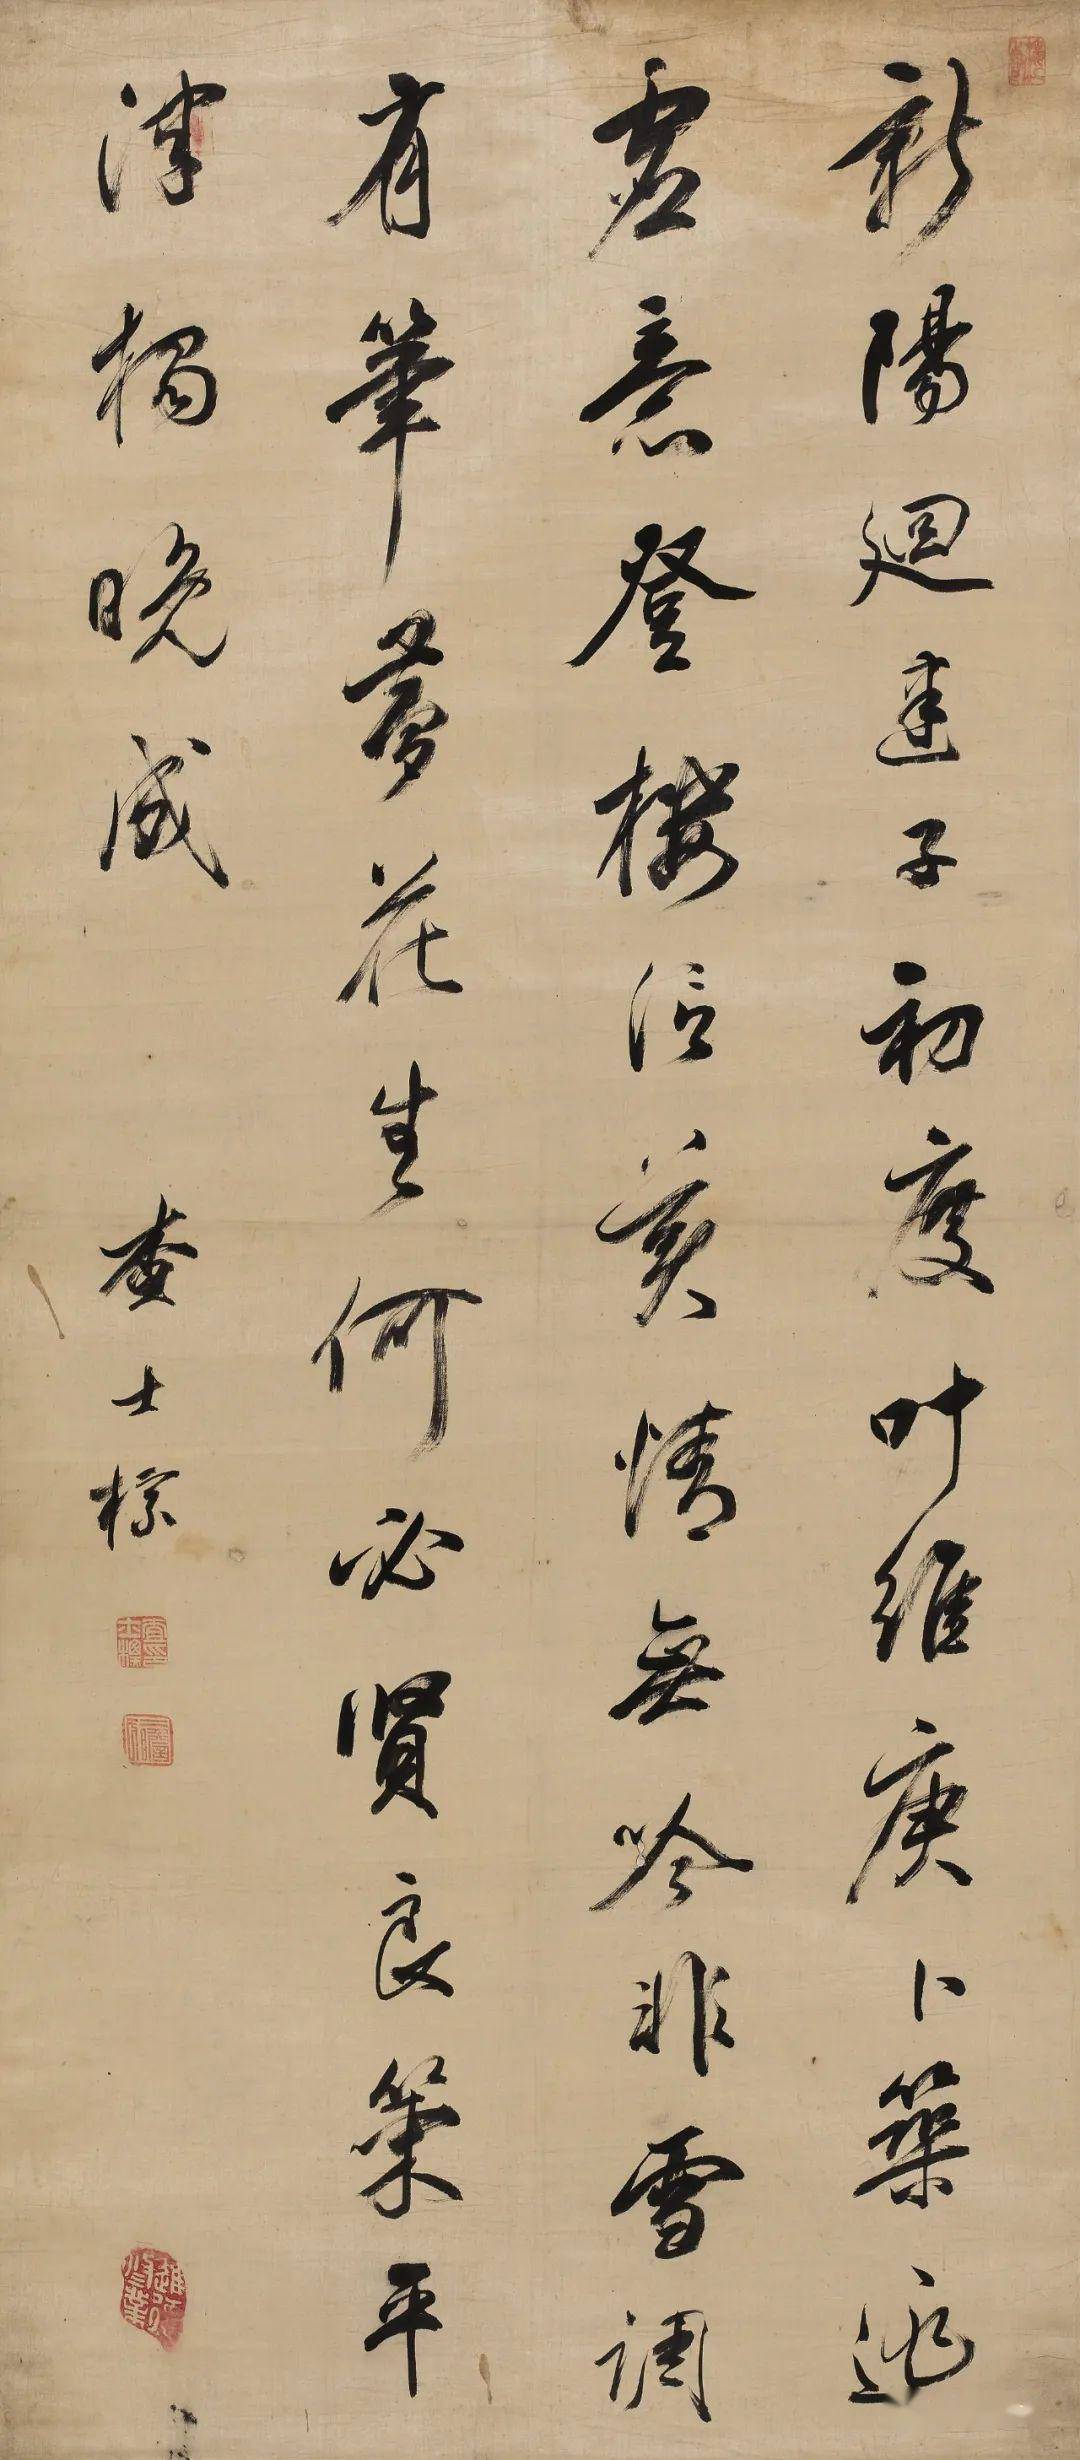 新陽迴建子初度叶維庚卜築逃
虛意登樓信美情無吟非雪調
有筆夢花生何必賢良策平
津獨晚成
查士標